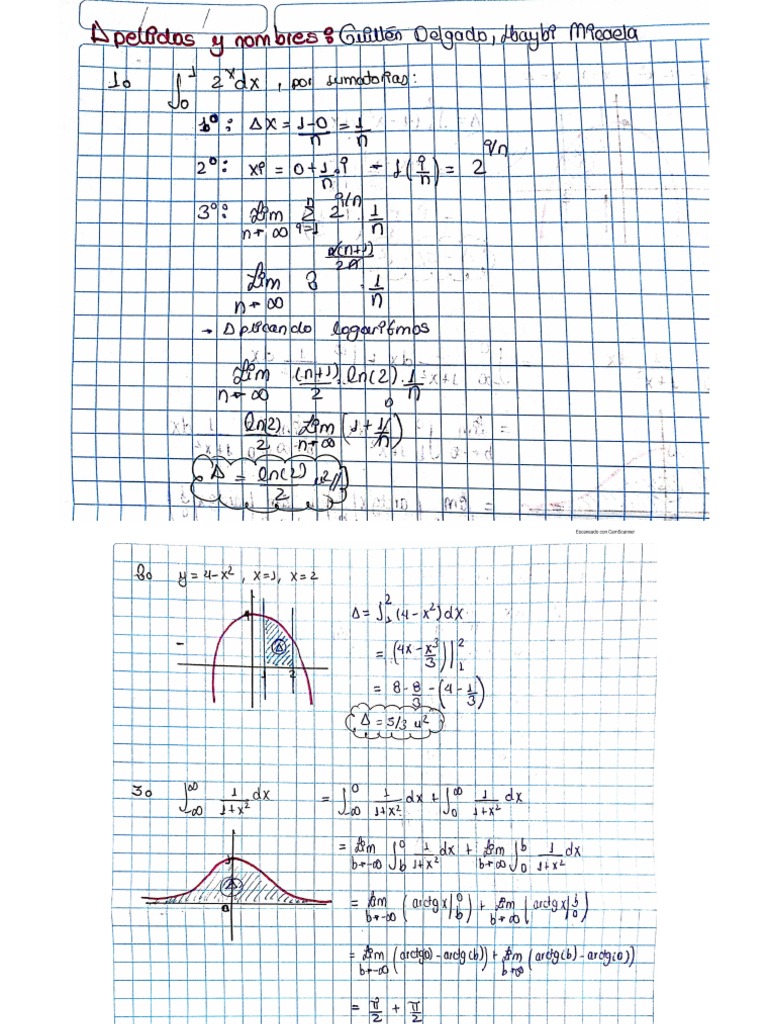 Apellidos y nombres: Guillén Delgado, Maybi Micaela
1o ∫₀¹ 2ˣdx , por sumatorias:
1°: Δx = 1-0/n = 1/n
2°: xi = 0+1/n.i → f(i/n) = 2^(i/n)
3°: Lim n→∞ Σ i=1 n 2^(i/n) . 1/n
Lim n→∞ 2^(n(n+1)/2n) . 1/n
→ Aplicando logaritmos
Lim n→∞ (n+1)/2 . ln(2) . 1/n
ln(2)/2 . Lim n→∞ (1 + 1/n) 0
A = ln(2)/2 u²//
Escaneado con CamScanner
2o y = 4-x² , x=1, x=2
A = ∫₁² (4-x²)dx
= (4x - x³/3)|₁²
= 8 - 8/3 - (4 - 1/3)
A = 5/3 u²
4
A
1 2
3o ∫₋∞^∞ 1/1+x² dx = ∫₋∞⁰ 1/1+x² dx + ∫₀^∞ 1/1+x² dx
= Lim b→-∞ ∫b⁰ 1/1+x² dx + Lim b→∞ ∫₀ᵇ 1/1+x² dx
1
A
0
= Lim b→-∞ (arctgx|b⁰) + Lim b→∞ (arctgx|₀ᵇ)
= Lim b→-∞ (arctg(0) - arctg(b)) + Lim b→∞ (arctg(b) - arctg(0))
= π/2 + π/2